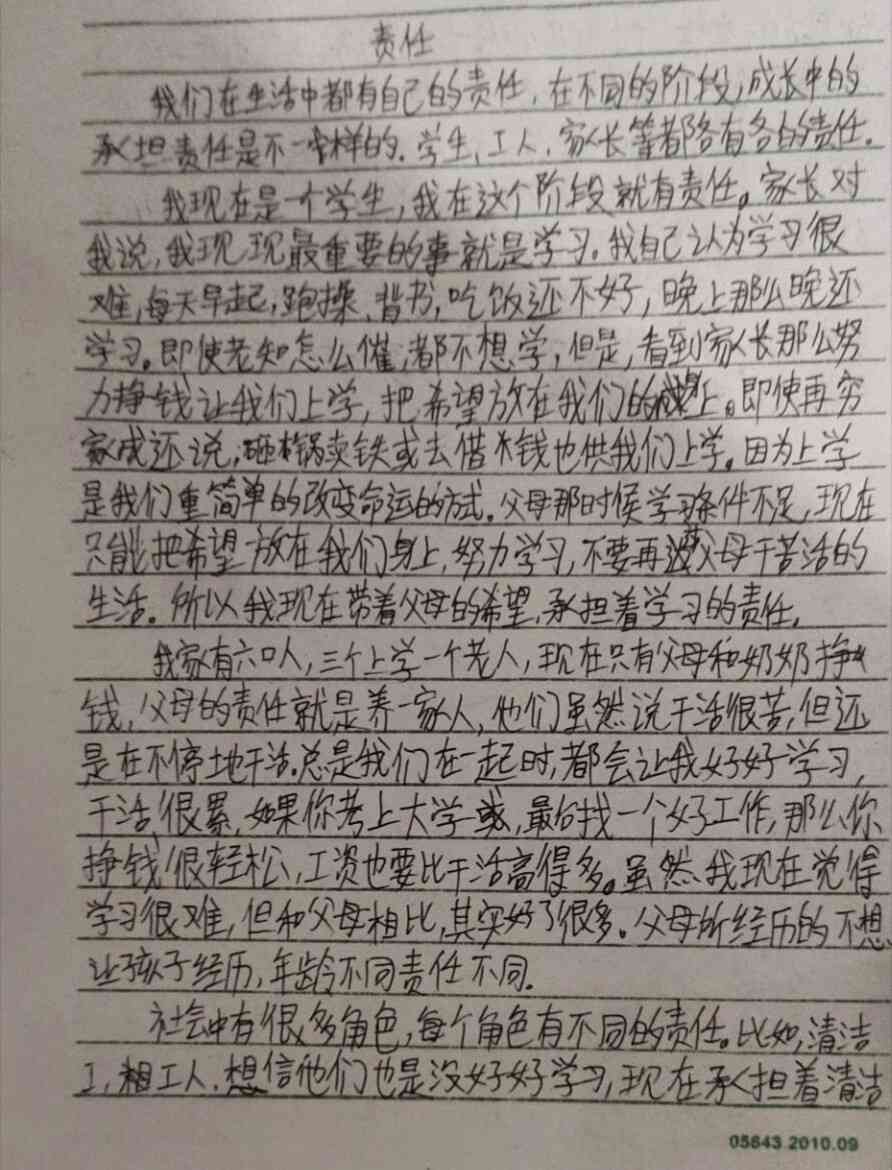 责任
我们在生活中都有自己的责任,在不同的阶段,成长中的
承担责任是不一样的.学生,工人,家长等都各有各的责任.
我现在是一个学生,我在这个阶段就有责任。家长对
我说,我现现最重要的事就是学习。我自己认为学习很
难,每天早起,跑操,背书,吃饭还不好,晚上那么晚还
学习。即使老知怎么催,都不想学,但是,看到家长那么努
力挣钱让我们上学,把希望放在我们的上。即使再穷
家成还说,砸锅卖铁或去借钱也供我们上学。因为上学
是我们重简单的改变命运的方式.父母那时候学习条件不足,现在
只能把希望放在我们身上,努力学习,不要再父母干苦活的
生活.所以我现在带着父母的希望,承担着学习的责任,
我家有六口人,三个上学一个老人,现在只有父母和奶奶挣
钱,父母的责任就是养一家人,他们虽然说干活很苦,但还
是在不停地干活.总是我们在一起时,都会让我好好学习,
干活很累,如果你考上大学或,最后找一个好工作,那么你
挣钱很轻松,工资也要比干活高得多。虽然,我现在觉得
学习很难,但和父母相比,其实好了很多.父母所经历的不想
让孩子经历,年龄不同责任不同.
社会中有很多角色,每个角色有不同的责任。比如,清洁
工,粗工人.想信他们也是没好好学习,现在承担着清洁
05643 2010.09